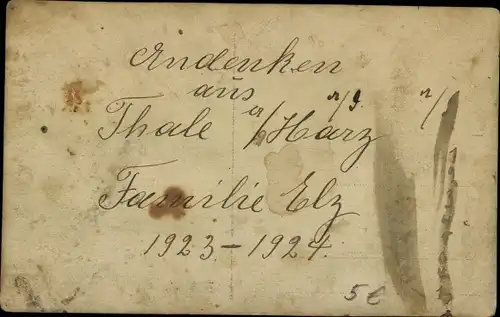 Andenken
aus
Thale a/Harz
Familie Elz
1923-1924.
5 €